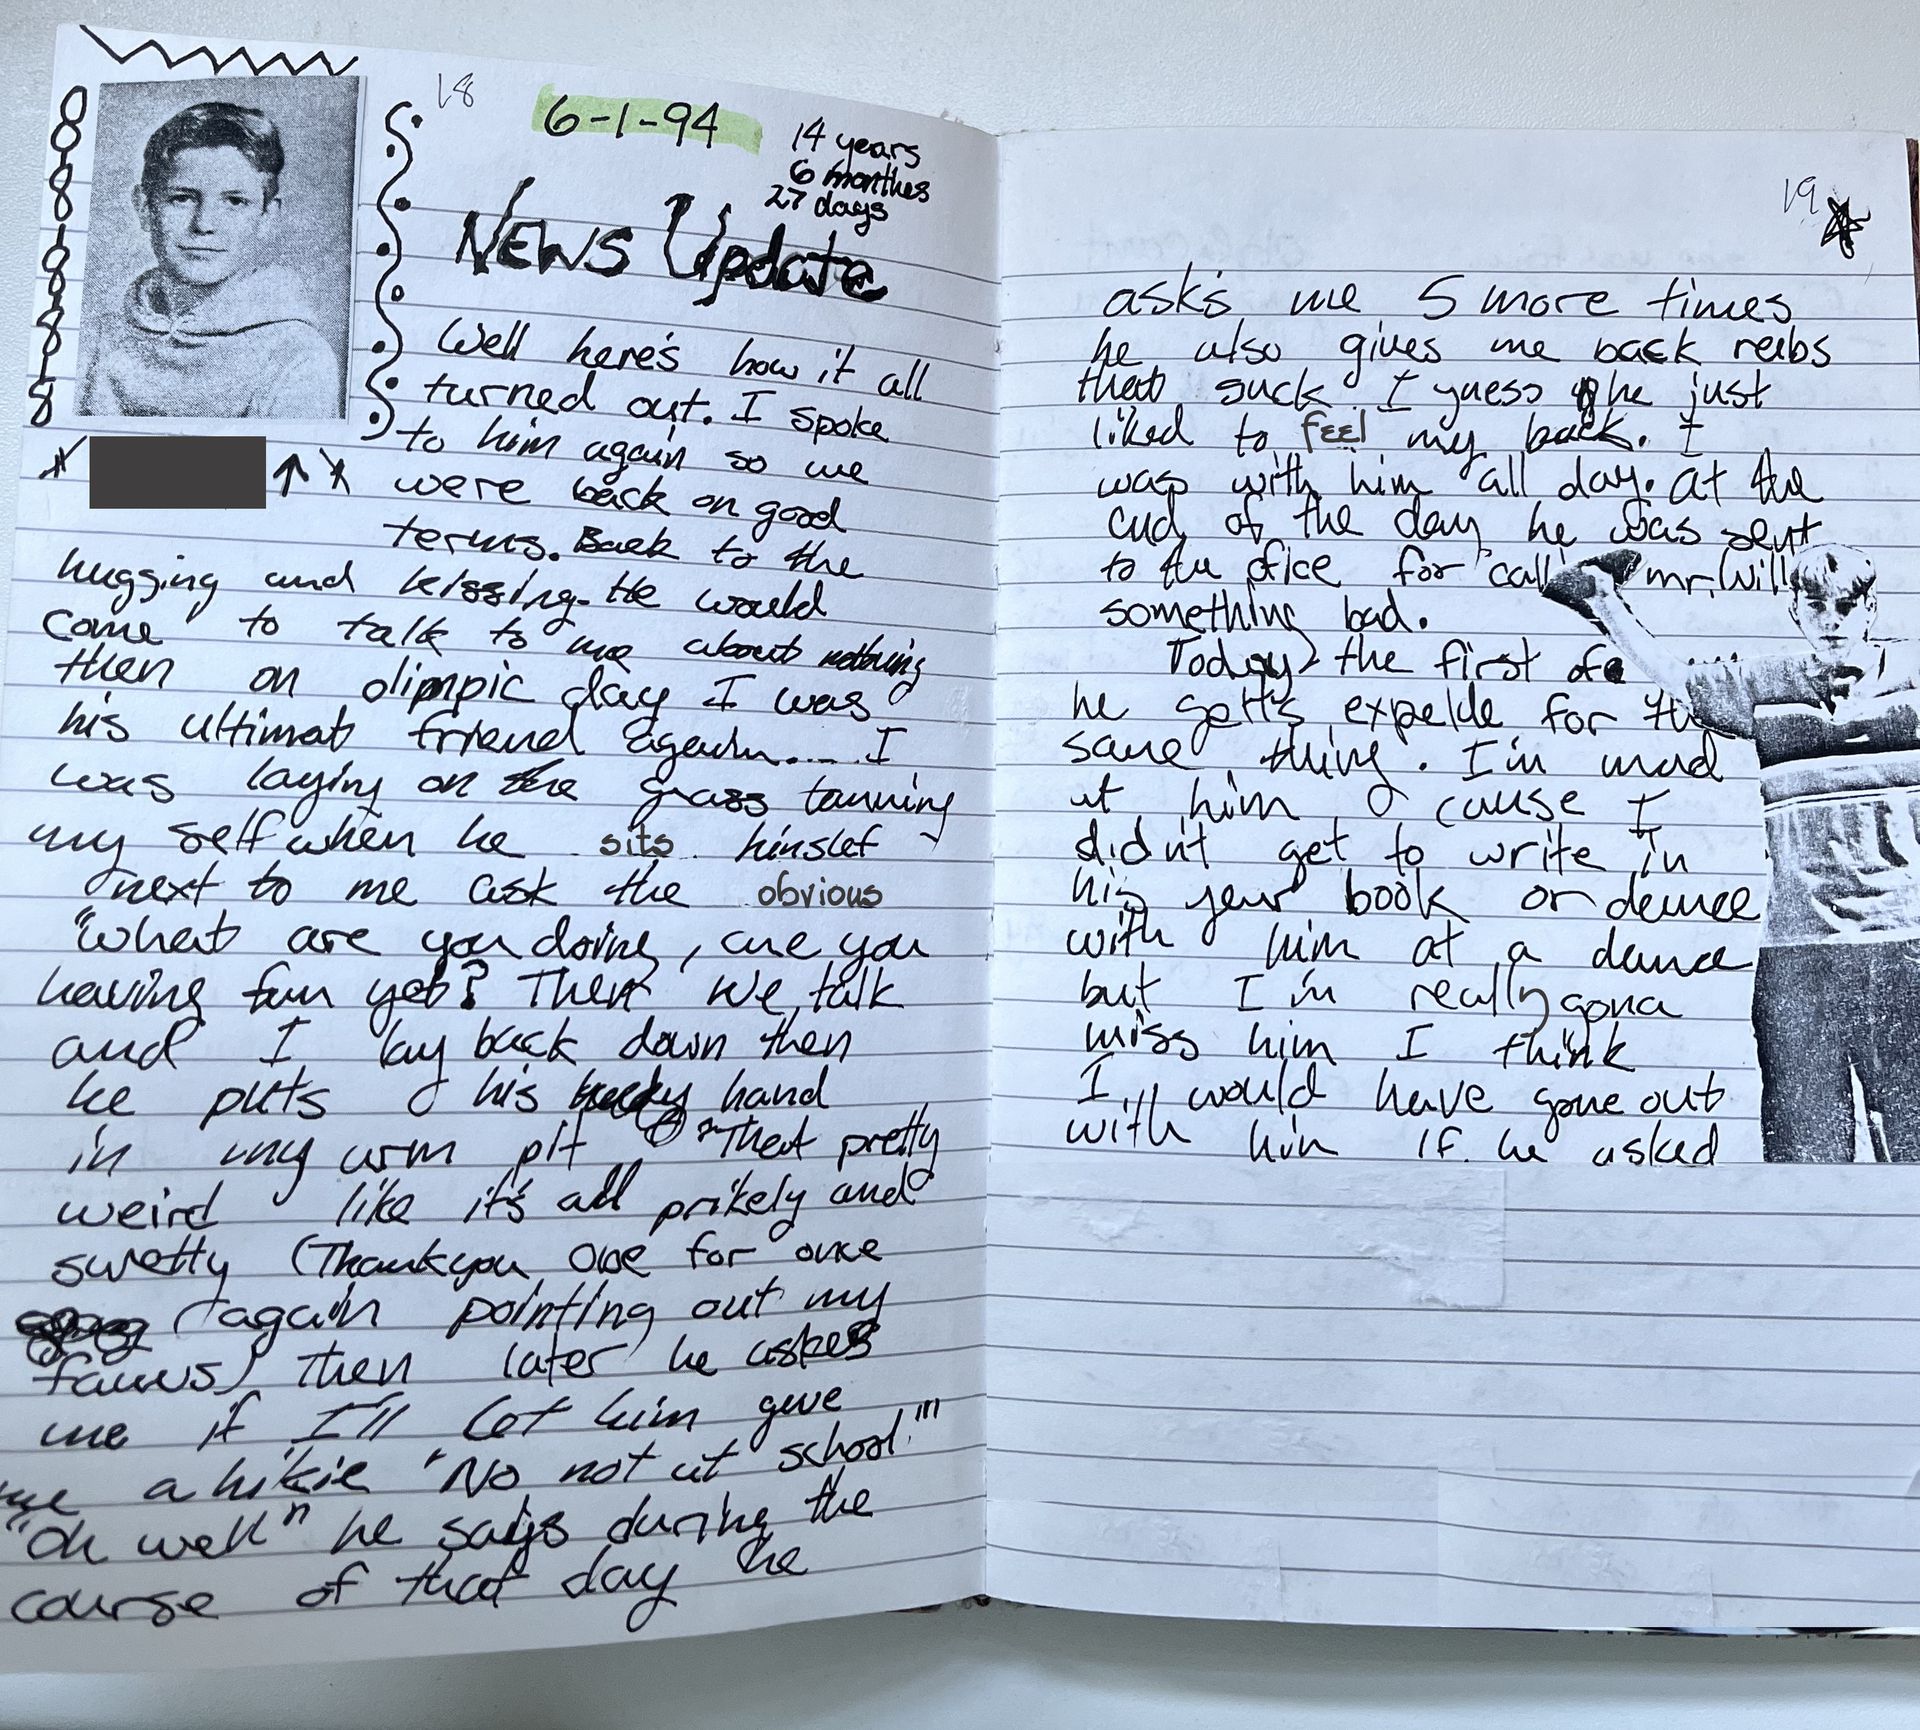 18
6-1-94
14 years
6 monthes
27 days
News Update
Well here's how it all
turned out. I spoke
to him again so we
were back on good
terms. Back to the
hugging and kissing. He would
come to talk to me about nothing
then on olimpic day I was
his ultimat friend again.... I
was laying on the grass tanning
my self when he sits hinslef
next to me ask the obvious
"What are you doing, are you
having fun yet? Then we talk
and I lay back down then
he puts his hand
in my arm pit "That pretty
weird like it's all prikely and
swetty (Thankyou one for once
again pointing out my
) Then later he askes
me if I'll let him give
me a hikie "No not at school!"
"Oh well" he says during the
course of that day he
19
asks me 5 more times
he also gives me back reubs
that suck I guess he just
liked to feel my back. I
was with him all day. at the
end of the day he was sent
to the ofice for call mr. Will
something bad.
Today, the first of
he gett's expelde for the
same thing. I'm mad
at him cause I
didn't get to write in
his year book or dance
with him at a dance
but I'm really gona
miss him I think
I would have gone out
with him if he asked